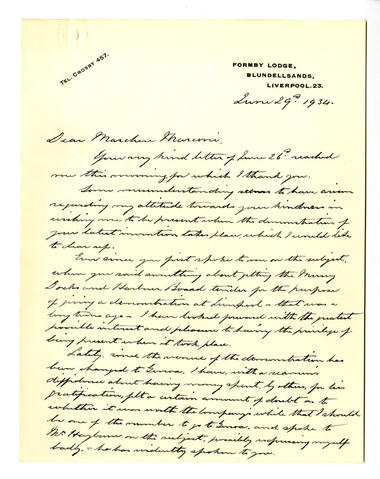 TEL. CROSBY 457.
FORMBY LODGE,
BLUNDELLSANDS,
LIVERPOOL.23.
June 29th 1934.
Dear Marchese Marconi,
Your very kind letter of June 26th reached
me this morning for which I thank you.
Some misunderstanding seems to have arisen
regarding my attitude towards your kindness in
wishing me to be present when the demonstration of
your latest invention takes place, which I would like
to clear up.
Ever since you first spoke to me on the subject,
when you said something about getting the Mersey
Docks and Harbour Board tender for the purpose
of giving a demonstration at Liverpool - that was a
long time ago - I have looked forward with the greatest
possible interest and pleasure to having the privilege of
being present when it took place.
Lately, since the venue of the demonstration has
been changed to Genoa, I have, with a seaman's
diffidence about having money spent, by others, for his
gratification, felt a certain amount of doubt as to
whether it was worth the Company's while that I should
be one of the number to go to Genoa, and spoke to
Mr on the subject, possibly expressing myself
badly, & he has evidently spoken to you.